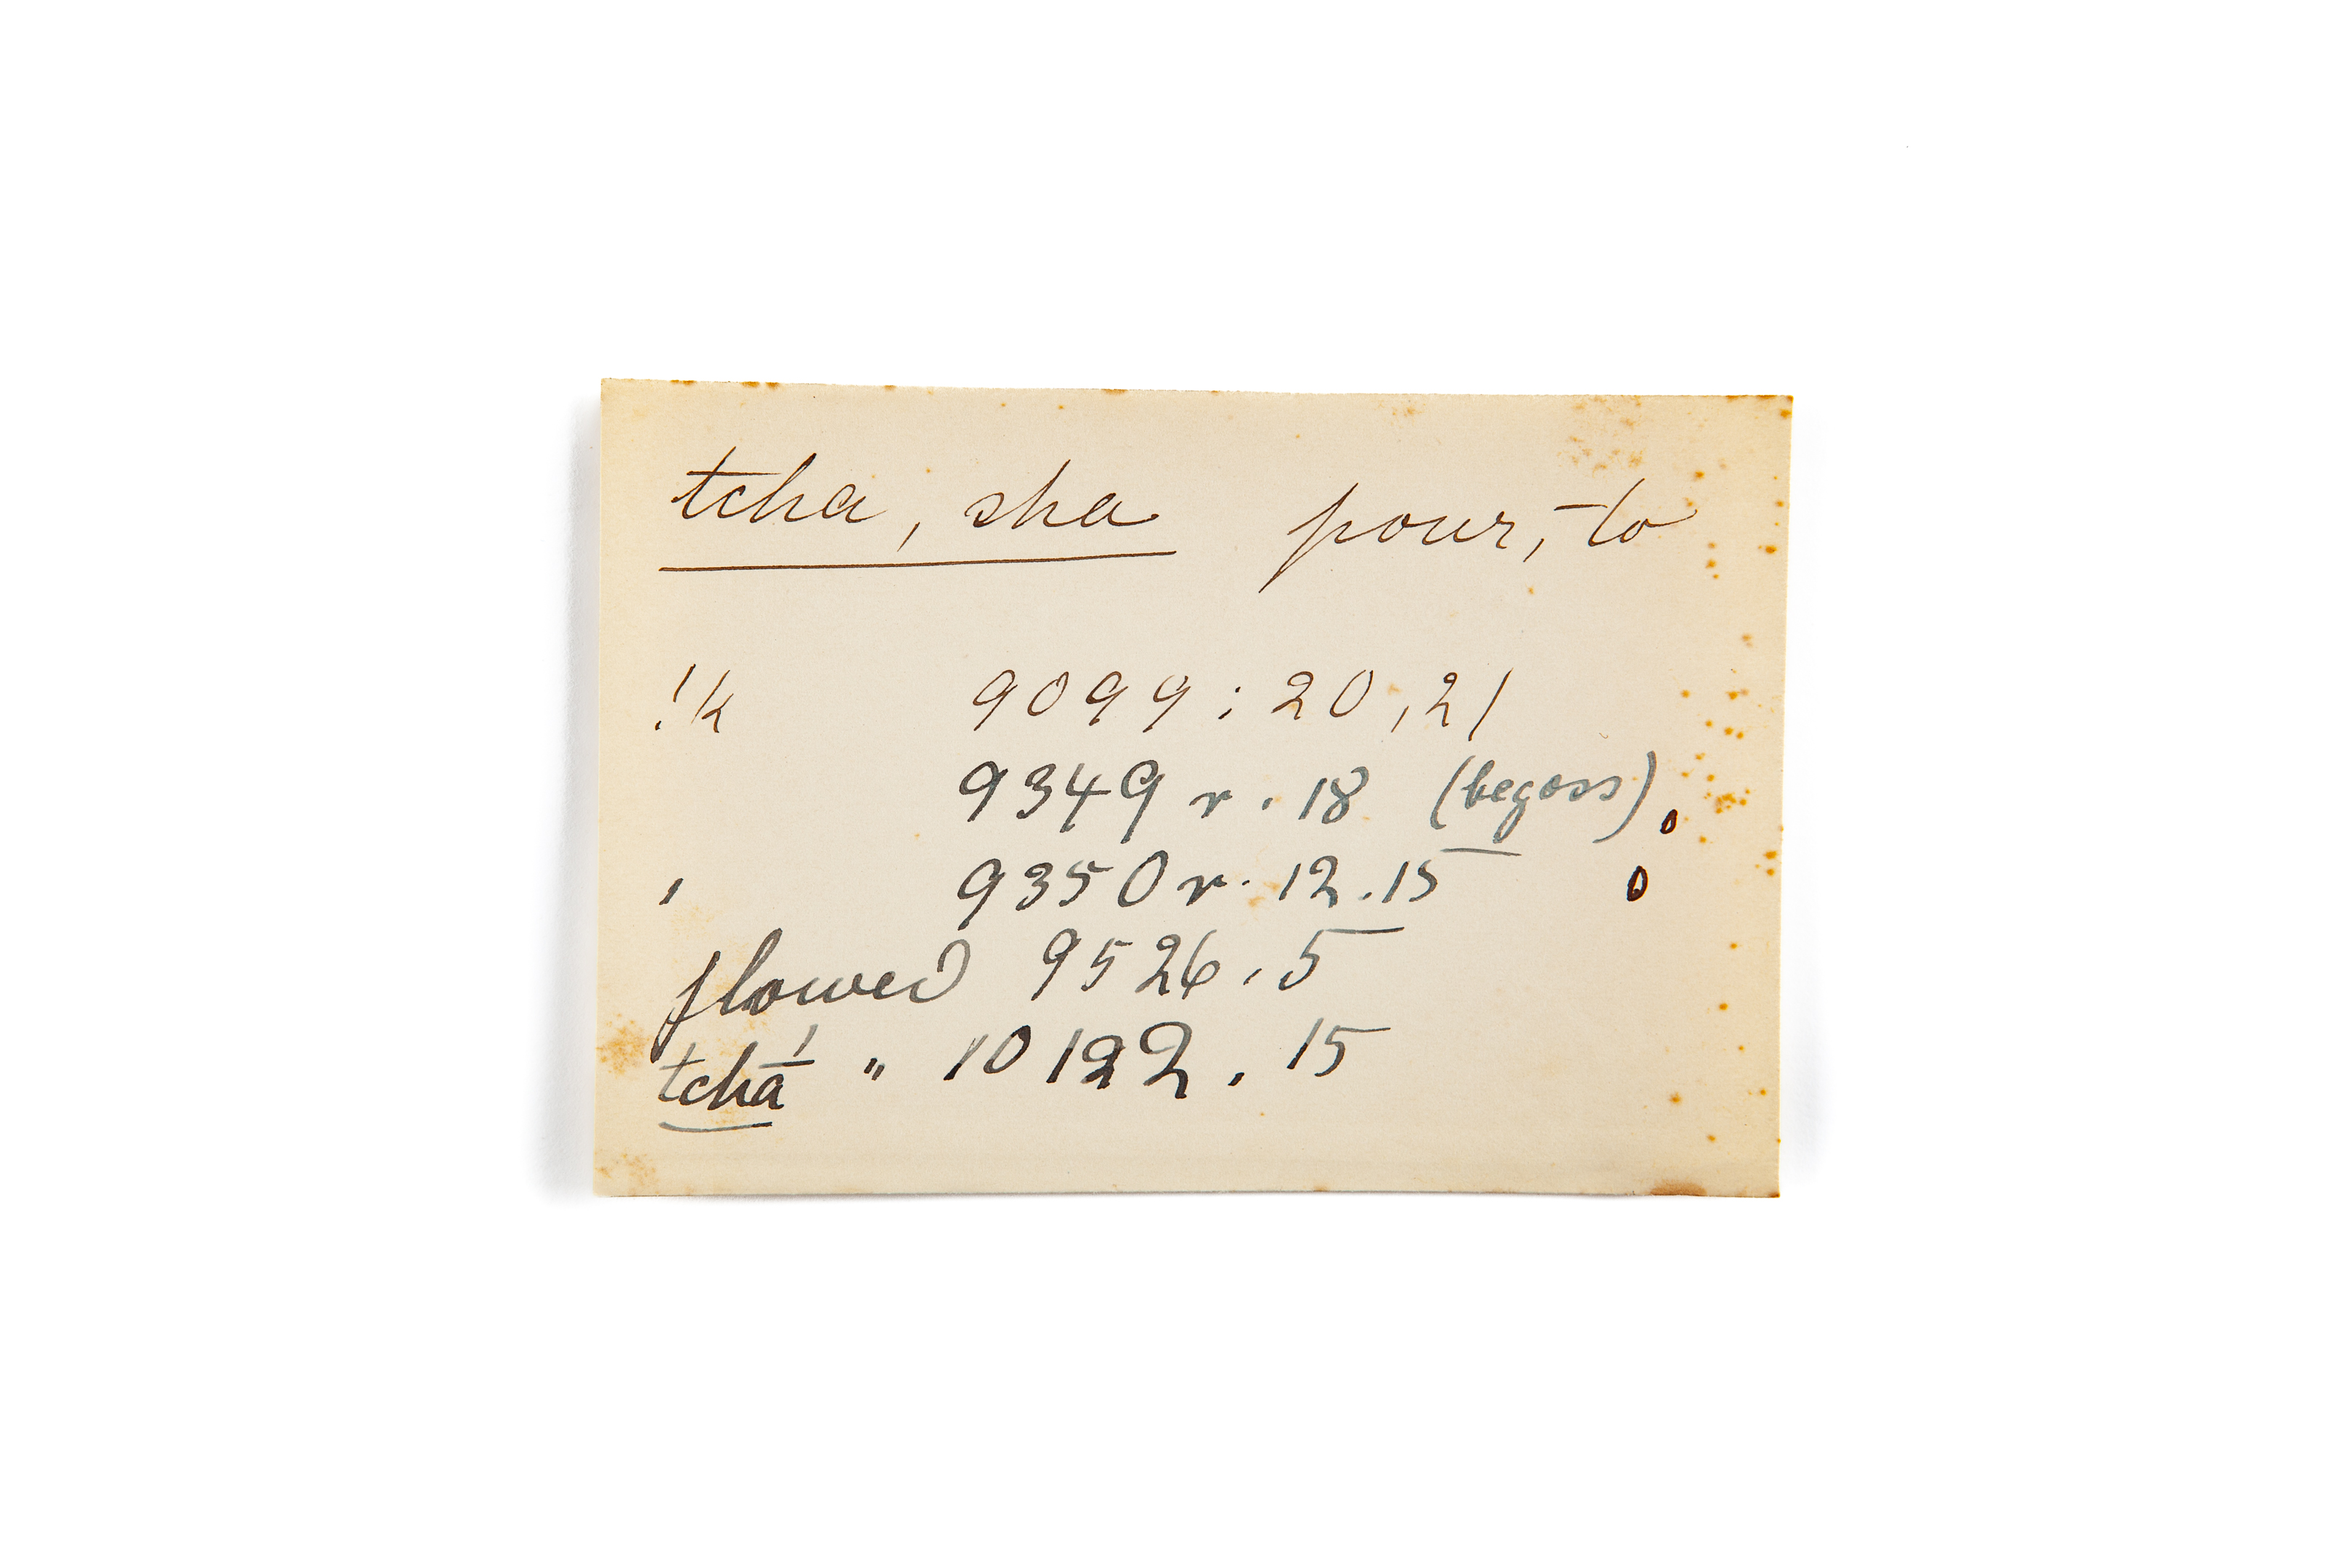 tcha, sha pour, to
!k 9099 : 20, 21
9349 r. 18 (begoss).
, 9350 r. 12. 15
flowed 9526. 5
tchā́ " 10122. 15